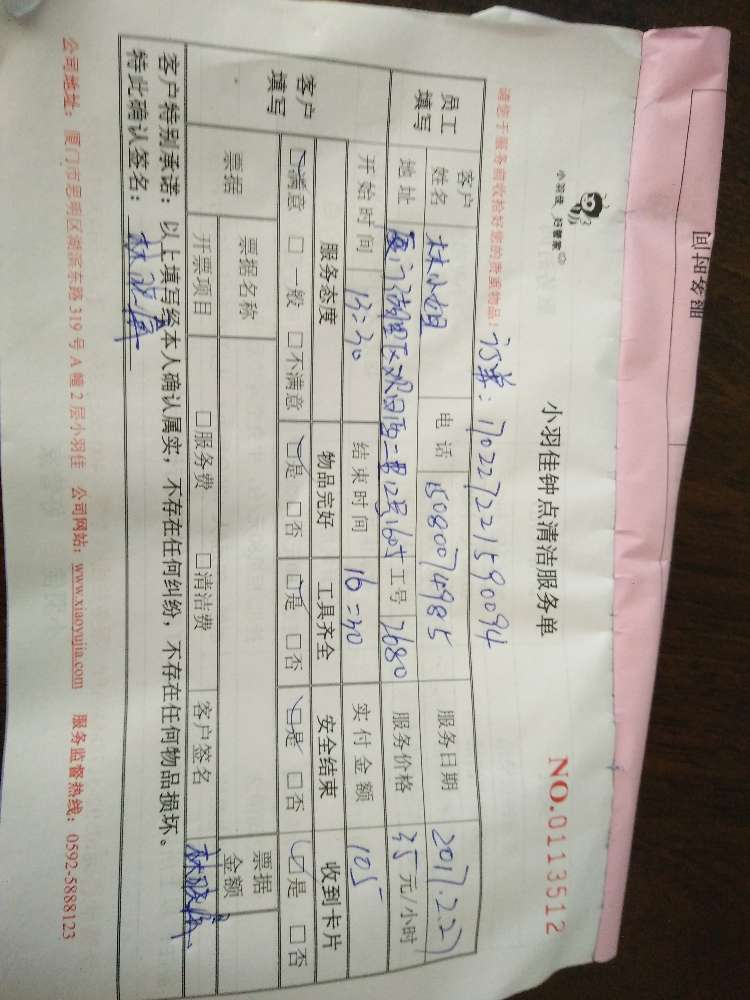 小羽佳 好管家
小羽佳钟点清洁服务单
NO.0113512
请您于服务前收拾好您的贵重物品!
订单:170227221590094
员工填写 客户姓名 林小姐 电话 15080074985 服务日期 2017.2.27
地址 厦门湖里区 西二里12号1605 工号 2680 服务价格 35元/小时
客户填写 开始时间 13:30 结束时间 16:30 实付金额 105
服务态度 物品完好 工具齐全 安全结束 收到卡片
☑满意 □一般 □不满意 ☑是 □否 ☑是 □否 ☑是 □否 ☑是 □否
票据 票据名称 票据金额
开票项目 □服务费 □清洁费 客户签名 林
客户特别承诺:以上填写经本人确认属实,不存在任何纠纷,不存在任何物品损坏。
特此确认签名:林
公司地址:厦门市思明区湖滨东路319号A幢2层小羽佳 公司网站:www.xiaoyujia.com 服务监督热线:0592-5888123